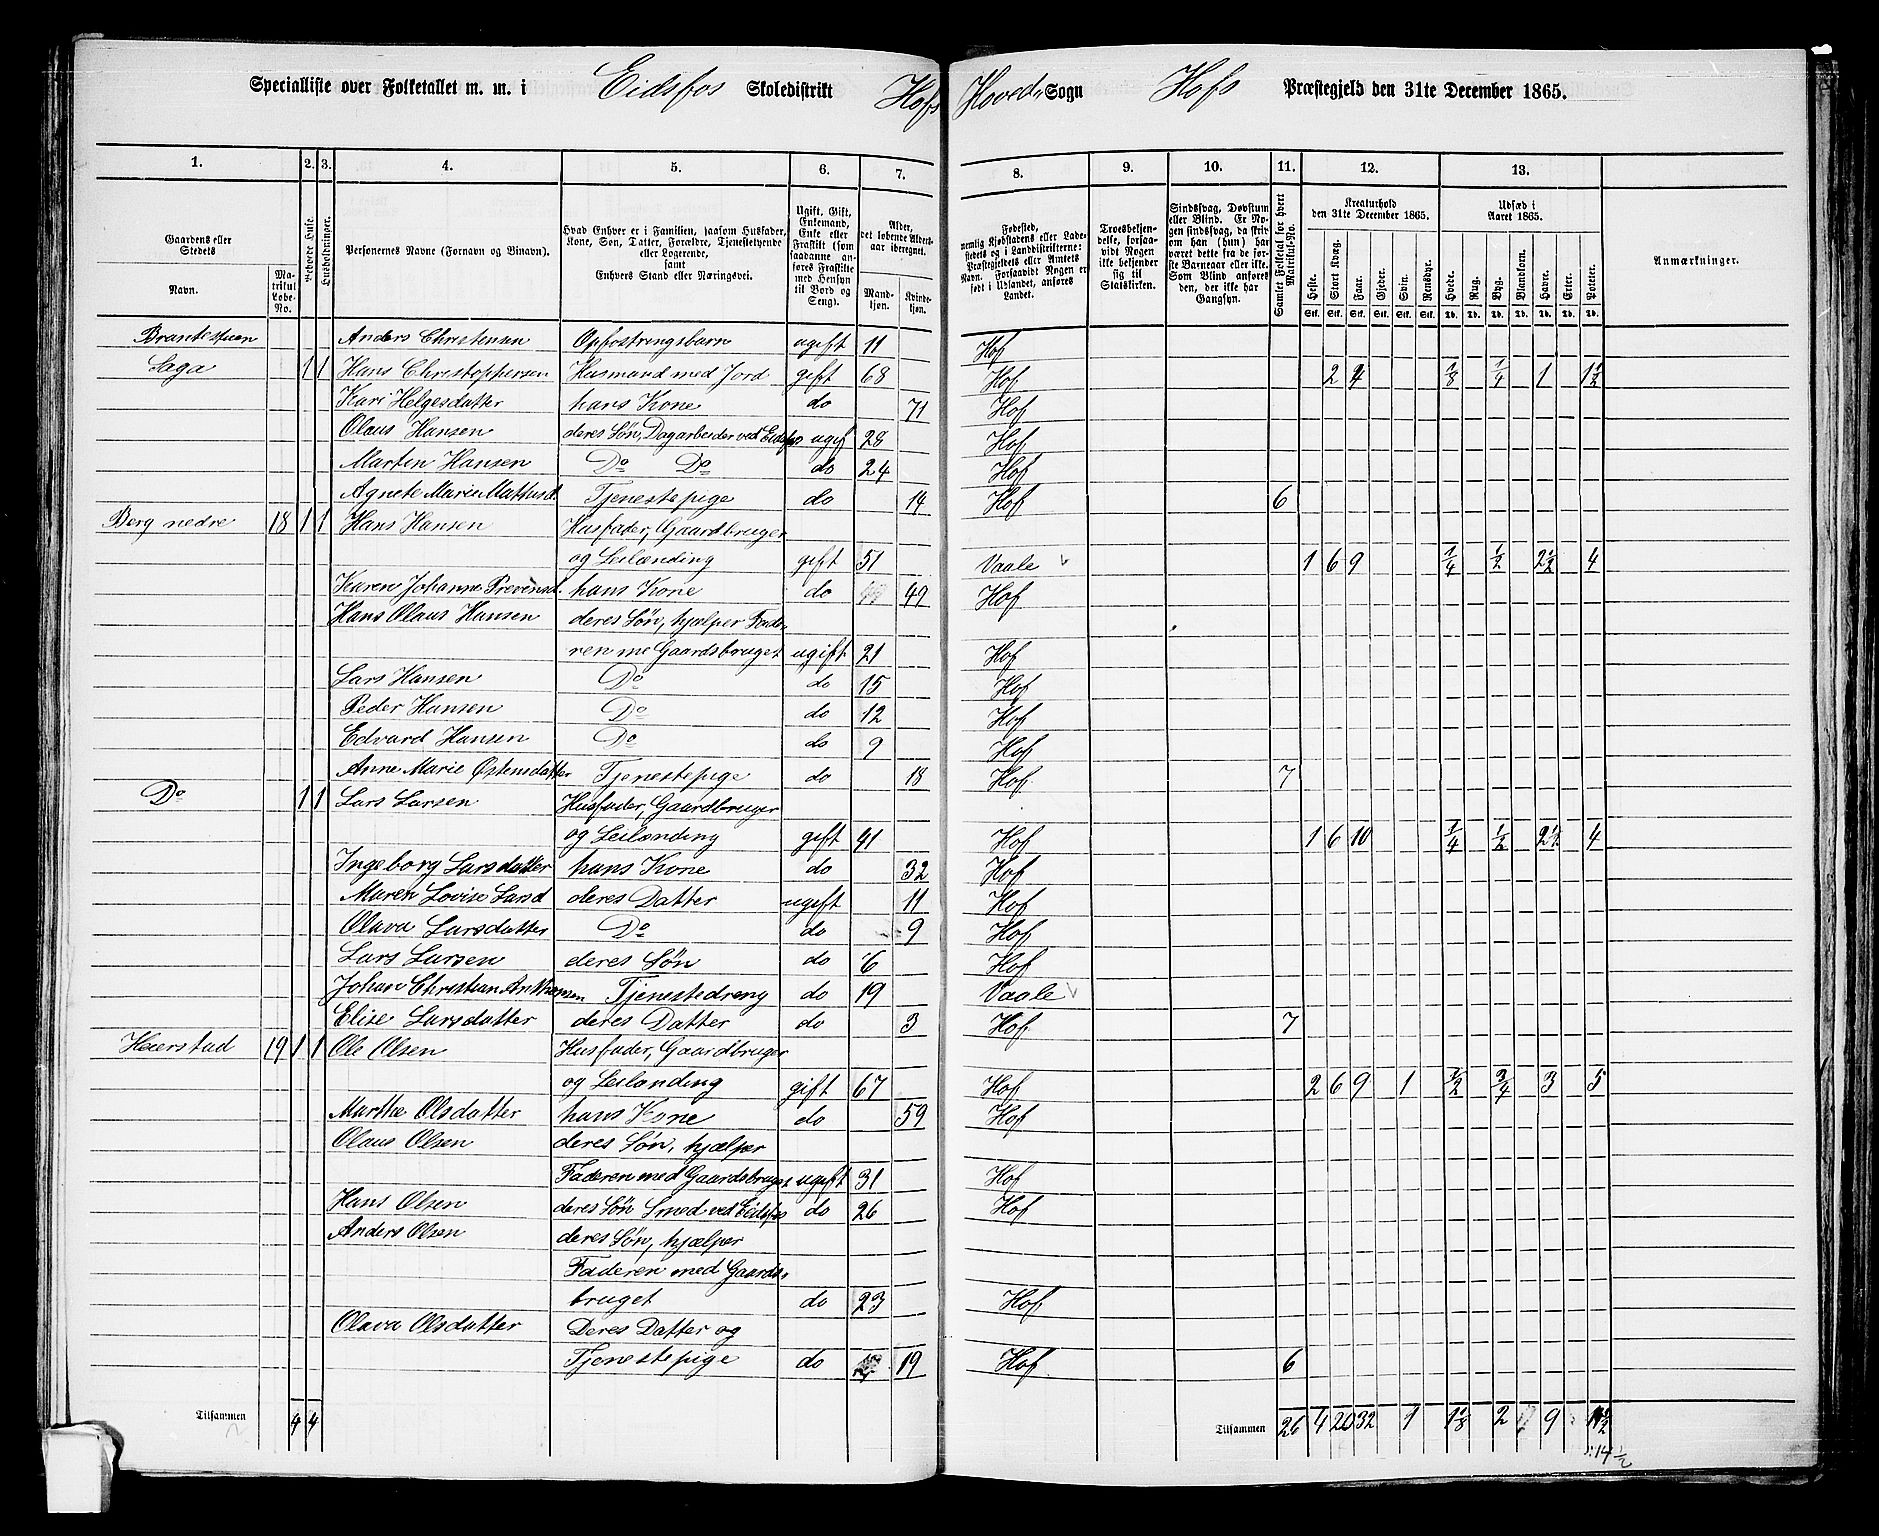 Specialliste over Folketallet m. m. i Eidsfos Skoledistrikt Hofs Hoved-Sogn Hofs Præstegjeld den 31te December 1865.
1. 2. 3. 4. 5. 6. 7. 8. 9. 10. 11. 12. 13.
Gaardens eller Stedets Navn.
Matrikul Løbe-No.
Beboede Huse.
Husholdninger.
Personernes Navne (Fornavn og Binavn).
Hvad Enhver er i Familien, saasom Husfader, Kone, Søn, Datter, Forældre, Tjenestetyende eller Logerende, samt Enhvers Stand eller Næringsvei.
Ugift, Gift, Enkemand, Enke eller Fraskilt (som saadanne anføres Fraskilte med Hensyn til Bord og Seng).
Alder, det løbende Alders-aar iberegnet.
Mandkjøn. Kvindekjøn.
Fødested, nemlig Kjøbstadens eller Ladestedets og i Landdistrikterne: Præstegjeldets eller Amtets Navn. Forsaavidt Nogen er født i Udlandet, anføres Landet.
Troesbekjendelse, forsaavidt Nogen ikke bekjender sig til Statskirken.
Sindssvag, Døvstum eller Blind. Er Nogen sindssvag, da skrives om han (hun) har været dette fra de første Barneaar eller ikke. Som Blind anføres den, der ikke har Gangsyn.
Samlet Folketal for hvert Matrikul-No.
Kreaturhold den 31te December 1865.
Heste. Stort Kvæg. Faar. Gjeder. Svin. Rensdyr.
Stk. Stk. Stk. Stk. Stk. Stk.
Udsæd i Aaret 1865.
Hvede. Rug. Byg. Blandkorn. Havre. Erter. Poteter.
Td. Td. Td. Td. Td. Td. Td.
Anmærkninger.
Anders Christensen Opfostringsbarn ugift 11 Hof
Saga 1 1 Hans Christophersen Husmand med Jord gift 68 Hof 2 4 1/8 1/4 1 1 1/2
Kari Helgesdatter hans Kone do 71 Hof
Olaus Hansen deres Søn, Dagarbeider ved Eidsfos ugif 28 Hof
Martin Hansen Do Do do 24 Hof
Agnete Marie Mathisd. Tjenestepige do 14 Hof 6
Berg nedre 18 1 1 Hans Hansen Husfader, Gaardbruger
og Leilænding gift 51 Vaale 1 6 9 1/4 1/2 2 1/2 4
Karen Johanne Prevensd. hans Kone do 49 Hof
Hans Olaus Hansen deres Søn, hjælper Fade-
ren me Gaardsbruget ugift 21 Hof
Lars Hansen Do do 15 Hof
Peder Hansen Do do 12 Hof
Edvard Hansen Do do 9 Hof
Anne Marie Østensdatter Tjenestepige do 18 Hof 7
Do 1 1 Lars Larsen Husfader, Gaardbruger
og Leilænding gift 41 Hof 1 6 10 1/4 1/2 2 1/2 4
Ingeborg Larsdatter hans Kone do 32 Hof
Maren Lovise Larsd deres Datter ugift 11 Hof
Olava Larsdatter Do do 9 Hof
Lars Larsen deres Søn do 6 Hof
Johan Christian Tjenestedreng do 19 Vaale
Elise Larsdatter deres Datter do 3 Hof 7
Heierstad 19 1 1 Ole Olsen Husfader, Gaardbruger
og Leilænding gift 67 Hof 2 6 9 1 1/2 3/4 3 5
Marthe Olsdatter hans Kone do 59 Hof
Olaus Olsen deres Søn, hjælper
Faderen med Gaardsbruget ugift 31 Hof
Hans Olsen deres Søn Smed ved Eidsfos do 26 Hof
Anders Olsen deres Søn, hjælper
Faderen med Gaards-
bruget do 23 Hof
Olava Olsdatter Deres Datter og
Tjenestepige do 19 Hof 6
Tilsammen 4 4 Tilsammen 26 4 20 32 1 1 1/8 2 9
14 1/2